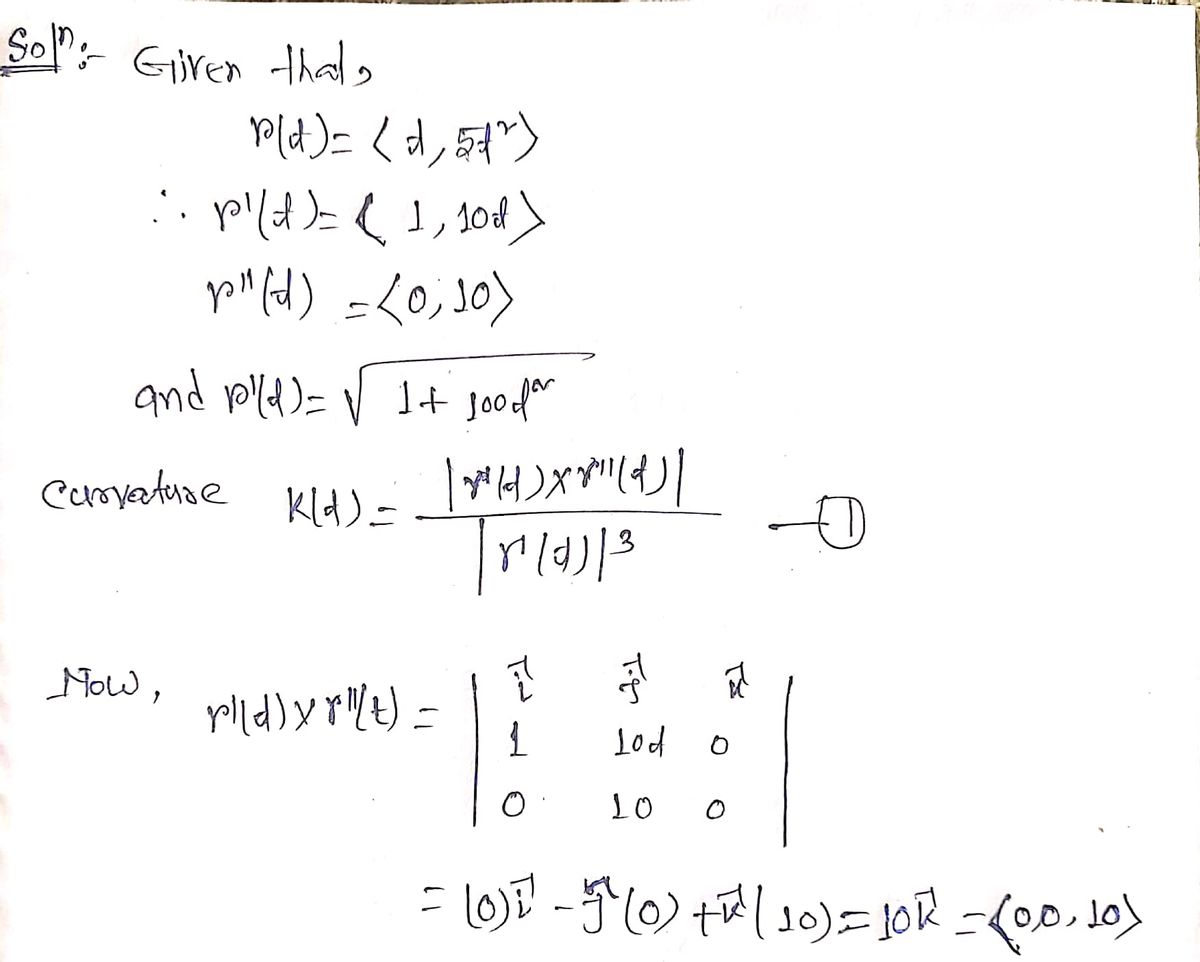 Solⁿ:- Given that,
r(t)= ⟨t, 5t²⟩
∴ r'(t)= ⟨1, 10t⟩
r''(t) =⟨0, 10⟩
and r'(t)= √(1+ 100t²)
Curvature K(t)= |r'(t)×r''(t)| / |r'(t)|³ —①
Now, r'(t)×r''(t) = | i⃗ j⃗ k⃗ |
1 10t 0
0 10 0
= (0)i⃗ - j⃗(0) + k⃗(10)= 10k⃗ =⟨0,0,10⟩